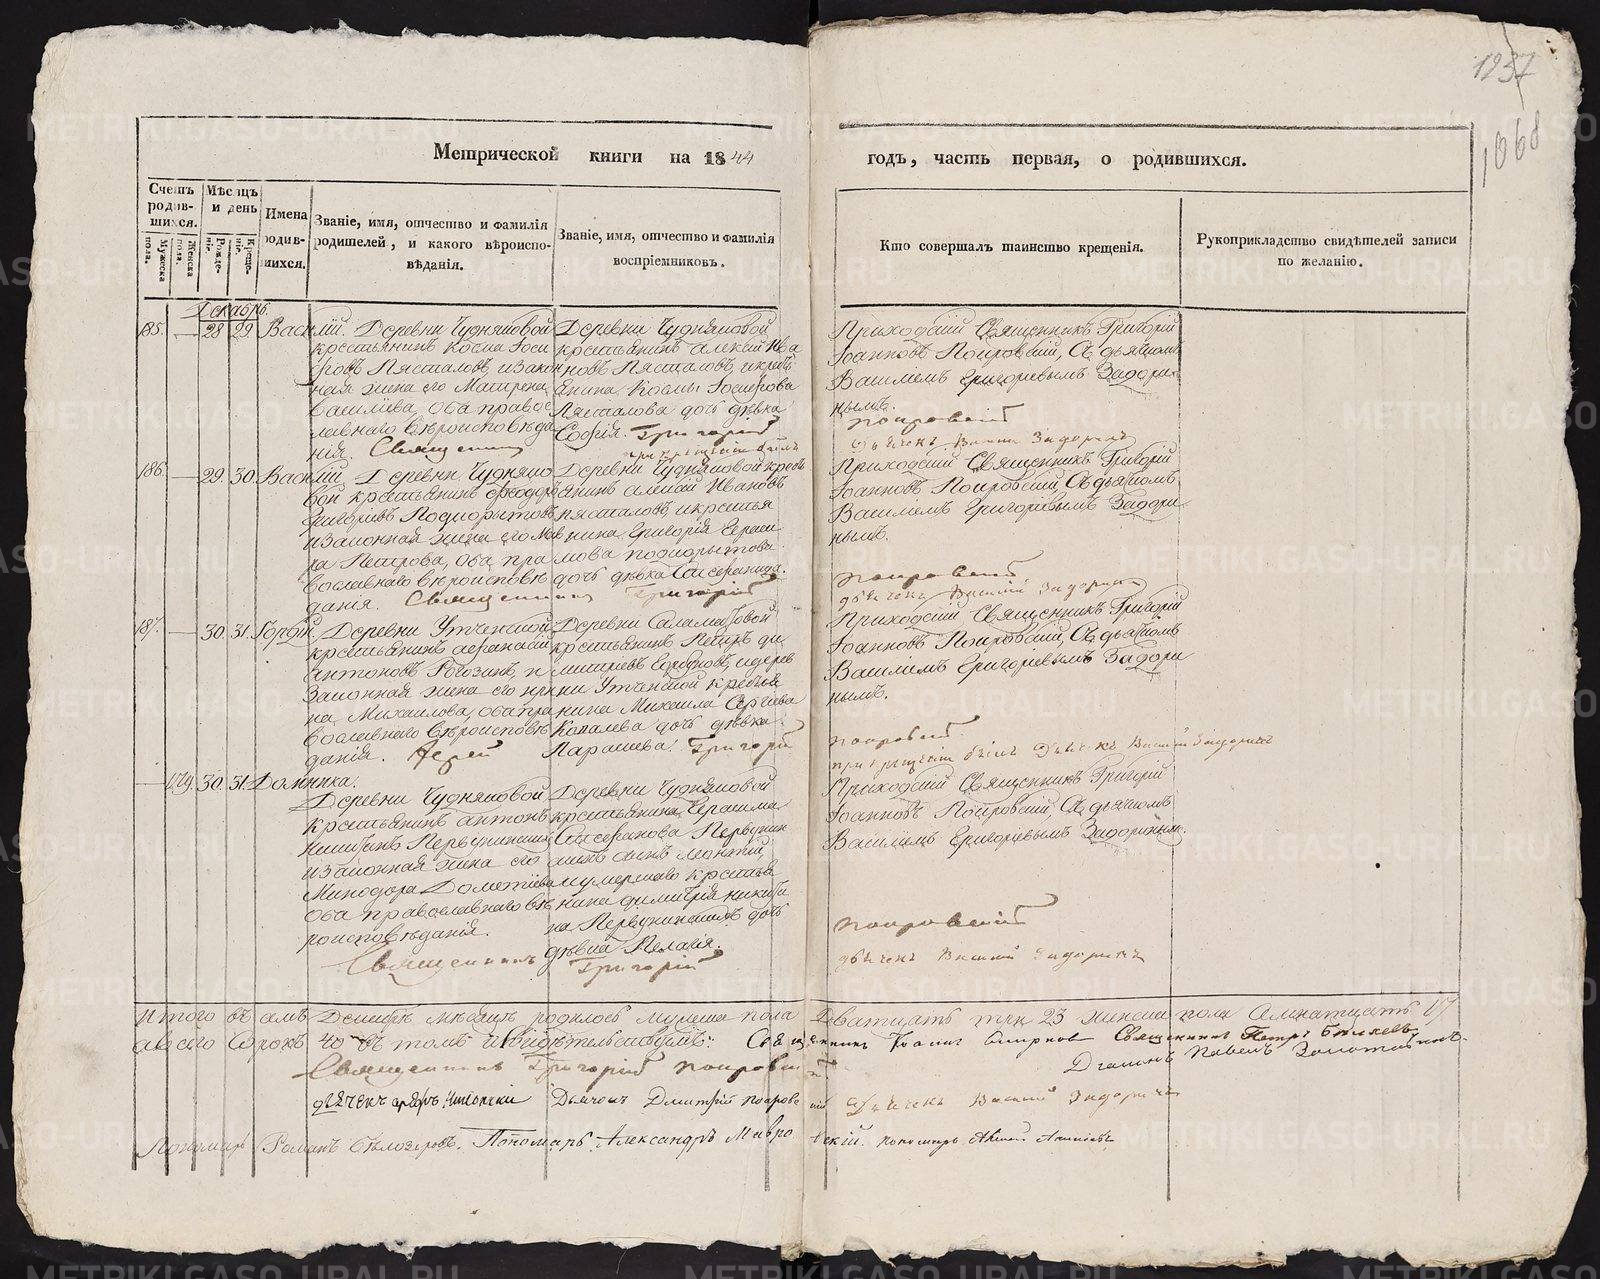 1237
1068
Метрической книги на 1844
годъ, часть первая, о родившихся.
Счетъ родившихся.
Мужеска пола.
Женска пола.
Мѣсяцъ и день
Рожденіе.
Крещеніе.
Имена родившихся.
Званіе, имя, отчество и фамилія родителей, и какого вѣроисповѣданія.
Званіе, имя, отчество и фамилія воспріемниковъ.
Кто совершалъ таинство крещенія.
Рукоприкладство свидѣтелей записи по желанію.
Декабрь
185. 28 29 Василій.
Деревни Чудняковой
крестьянинъ Косма Іоси
фовъ Пясталовъ, и закон
ная жена его Матрена
Василіева, оба правос
лавнаго вѣроисповѣда
нія. Священникъ
Деревни Чудняковой
крестьянинъ Алексій Ива
новъ Пясталовъ, и кресть
янина Космы Іосифова
Пясталова дочь дѣвка
Софія. Григорій
Приходскій Священникъ Григорій
Іоанновъ Покровскій, Съ дьячкомъ
Василіемъ Григорьевымъ Задори
нымъ.
Покровскій
Дьячекъ Василій Задоринъ
186. 29. 30. Василій.
Деревни Чудняко
вой крестьянинъ Ѳеодоръ
Григоріевъ Подкорытовъ
и законная жена его Мав
ра Петрова, оба пра
вославнаго вѣроисповѣ
данія. Священникъ
Деревни Чудняковой кресть
янинъ Алексій Ивановъ
Пясталовъ, и крестья
нина Григорія Гераси
мова Подкорытова
дочь дѣвка
Григорій
Приходскій Священникъ Григорій
Іоанновъ Покровскій, Съ дьячкомъ
Василіемъ Григоріевымъ Задори
нымъ.
Покровскій
дьячекъ Василій Задоринъ
187. 30. 31. Гордій.
Деревни Утченской
крестьянинъ Аѳанасій
Антоновъ Рогозинъ, и
законная жена его Ири
на Михаилова, оба пра
вославнаго вѣроисповѣ
данія. Іерей
Деревни Саламатовой
крестьянинъ Петръ Ди
митріевъ Горбуновъ, и дерев
ни Утченской крестья
нина Михаила Сергіева
Копалева дочь дѣвка
Параскева. Григорій
Приходскій Священникъ Григорій
Іоанновъ Покровскій, Съ дьячкомъ
Василіемъ Григоріевымъ Задори
нымъ.
Покровскій
при крещеніи былъ Дьячекъ Василій Задоринъ
179. 30. 31. Домника.
Деревни Чудняковой
крестьянинъ Антонъ
Никитинъ Первухинскихъ
и законная жена его
Минодора Дометіева
оба православнаго вѣ
роисповѣданія.
Священникъ
Деревни Чудняковой
крестьянина Герасима
сынъ Леонтій,
и умершаго крестья
нина Димитрія Ники
на Первухинскихъ дочь
дѣвка Пелагія.
Григорій
Приходскій Священникъ Григорій
Іоанновъ Покровскій, Съ дьячкомъ
Василіемъ Григоріевымъ Задоринымъ.
Покровскій
дьячекъ Василій Задоринъ
Итого въ Декабрѣ мѣсяцѣ родилось мужеска пола Дватцать три 23 женска пола Семнатцать 17
а всего Сорокъ 40 въ томъ и свидѣтельствуемъ: Священникъ Іоаннъ Смирновъ Священникъ Петръ
Священникъ Григорій Покровскій Діаконъ Павелъ
дьячекъ Дьячокъ Димитрій Покровскій Дьячекъ Василій Задоринъ
Пономарь Романъ Бѣлозеровъ. Пономарь Александръ Мавровскій. пономарь
METRIKI.GASO-URAL.RU